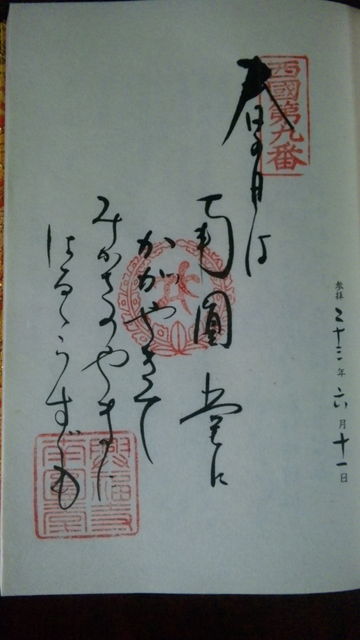 参拝 二十三年 六月十一日
西國第九番
春の日は
南圓堂に
かがやきて
みかさのやまに
はるゝうすぐも
興福寺
南圓堂